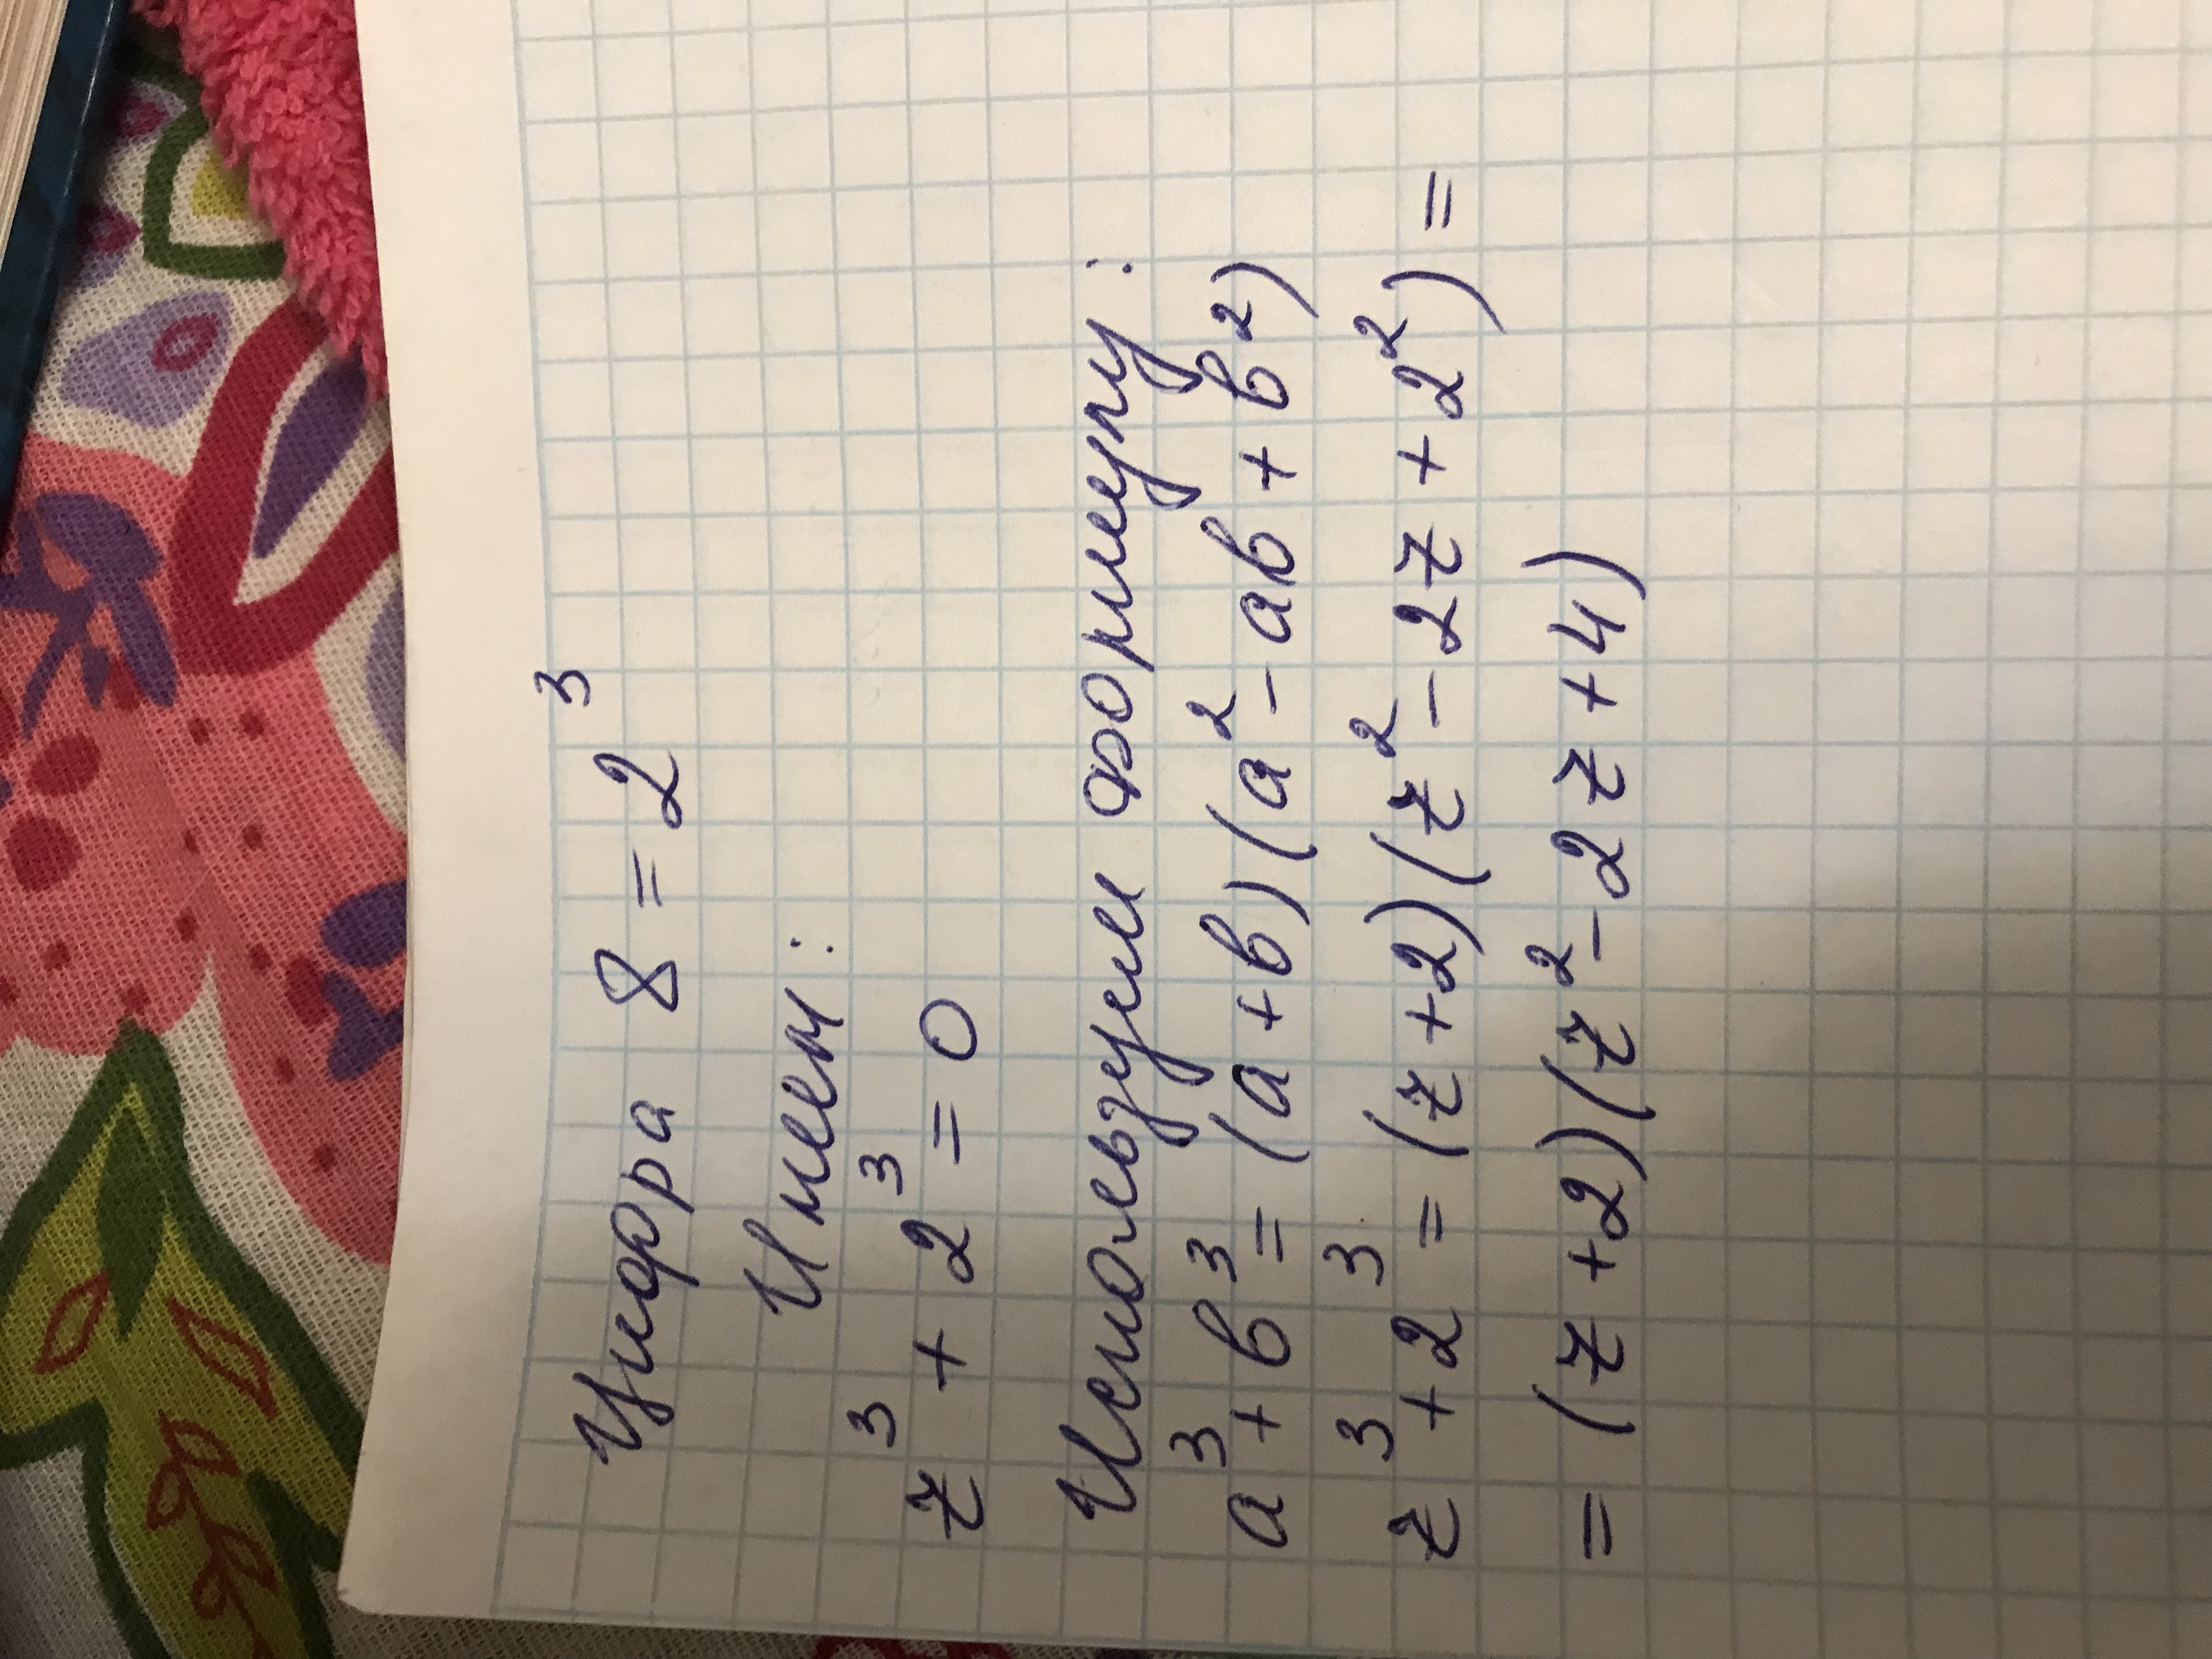 Цифра 8 = 2³
Имеем:
z³ + 2³ = 0
Используем формулу:
a³ + b³ = (a + b)(a² - ab + b²)
z³ + 2³ = (z + 2)(z² - 2z + 2²) =
= (z + 2)(z² - 2z + 4)